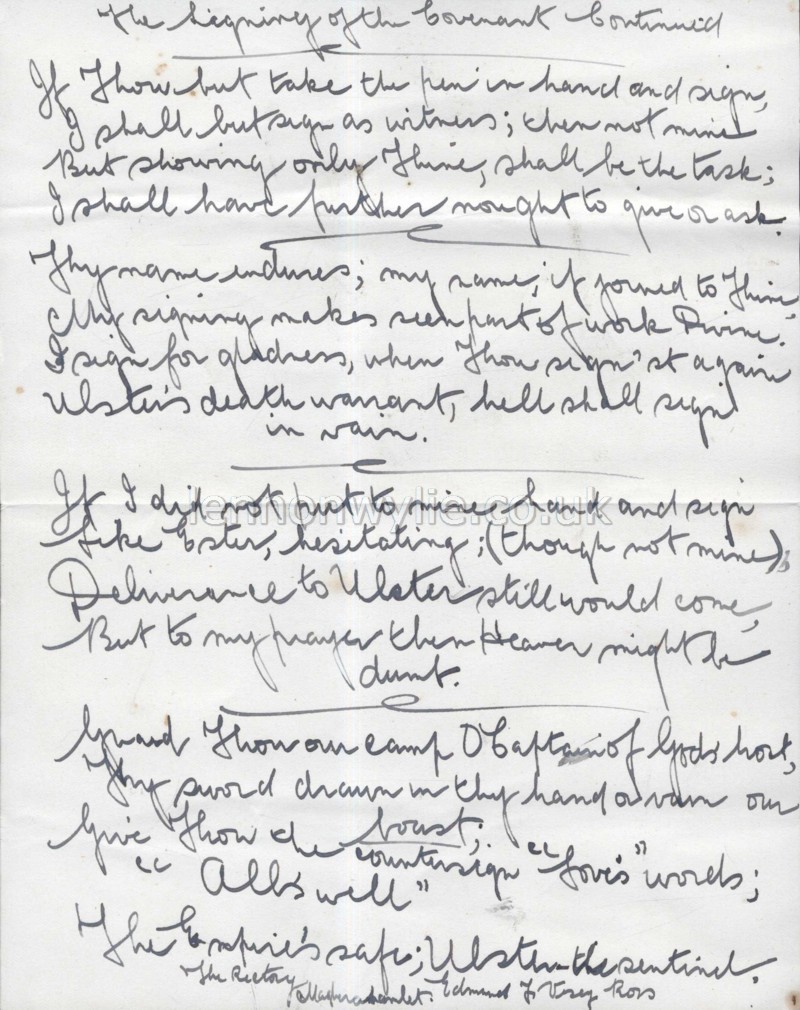 The Signing of the Covenant Continued
If Thou but take the pen in hand and sign,
I shall but sign as witness; then not mine
But showing only Thine, shall be the task;
I shall have further nought to give or ask.
Thy name endures; my name, if joined to Thine,
My signing makes seem part of work Divine.
I sign for gladness, when Thou sign'st again
Ulster's death warrant, hell shall sign
in vain.
If I did not put to mine hand and sign
lennonwylie.co.uk
Like Ester, hesitating; (though not mine)
Deliverance to Ulster still would come,
But to my prayer then Heaven might be
dumb.
Guard Thou our camp O Captain of God's host,
Thy sword drawn in thy hand or vain our
boast;
Give Thou the countersign "Love's" words;
"All's well"
The Empire's safe; Ulster the sentinel.
The Rectory
Magherahamlet. Edmund F Vesey Ross